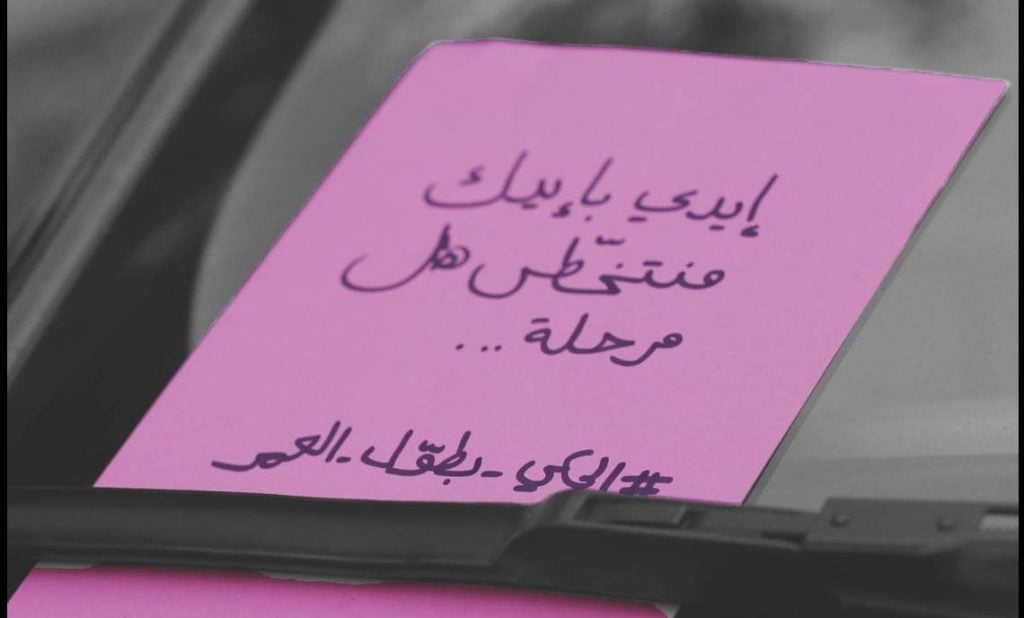 إيدي بإيدك
منتخطى هل
مرحلة ...
#الحكي-بطوّل-العمر